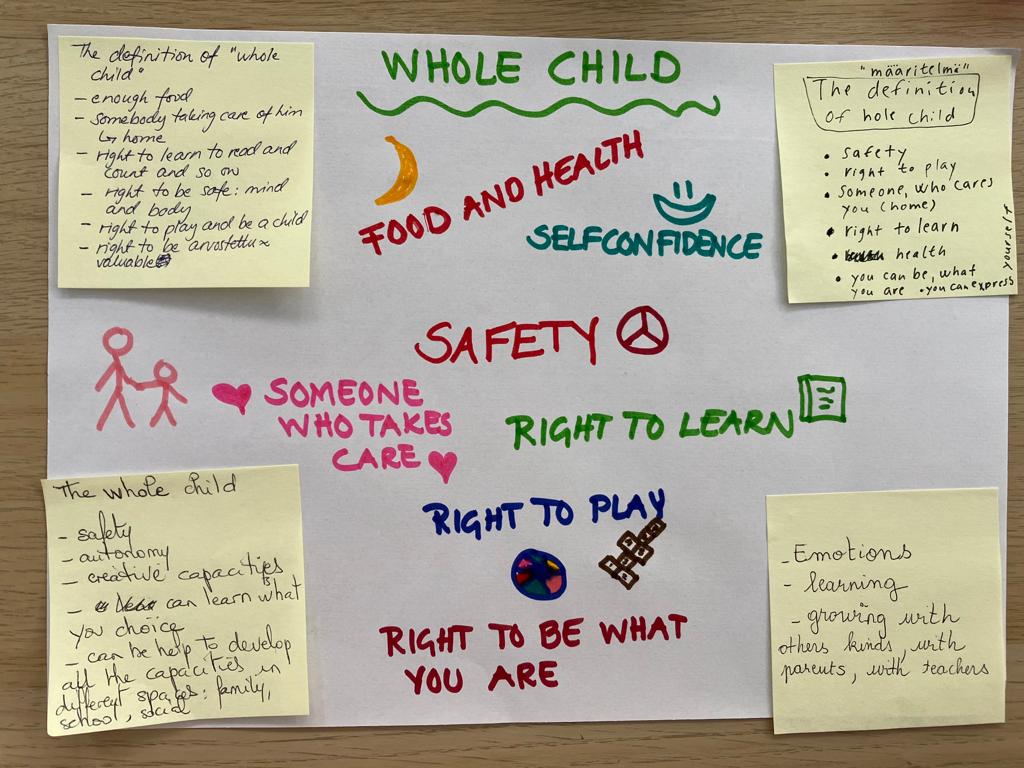 The definition of "whole
child"
- enough food
- somebody taking care of him
↳ home
- right to learn to read and
count and so on
- right to be safe: mind
and body
- right to play and be a child
- right to be arvostettu ≈
valuable
WHOLE CHILD
FOOD AND HEALTH
SELFCONFIDENCE
SAFETY
SOMEONE
WHO TAKES
CARE
RIGHT TO LEARN
RIGHT TO PLAY
RIGHT TO BE WHAT
YOU ARE
"määritelmä"
The definition
of hole child
• safety
• right to play
• someone, who cares
you (home)
• right to learn
• health
• you can be, what
you are • you can express
yourself
The whole child
- safety
- autonomy
- creative capacities
- can learn what
you choice
- can be help to develop
all the capacities in
different spaces: family,
school, social
- Emotions
- learning
- growing with
others kinds, with
parents, with teachers